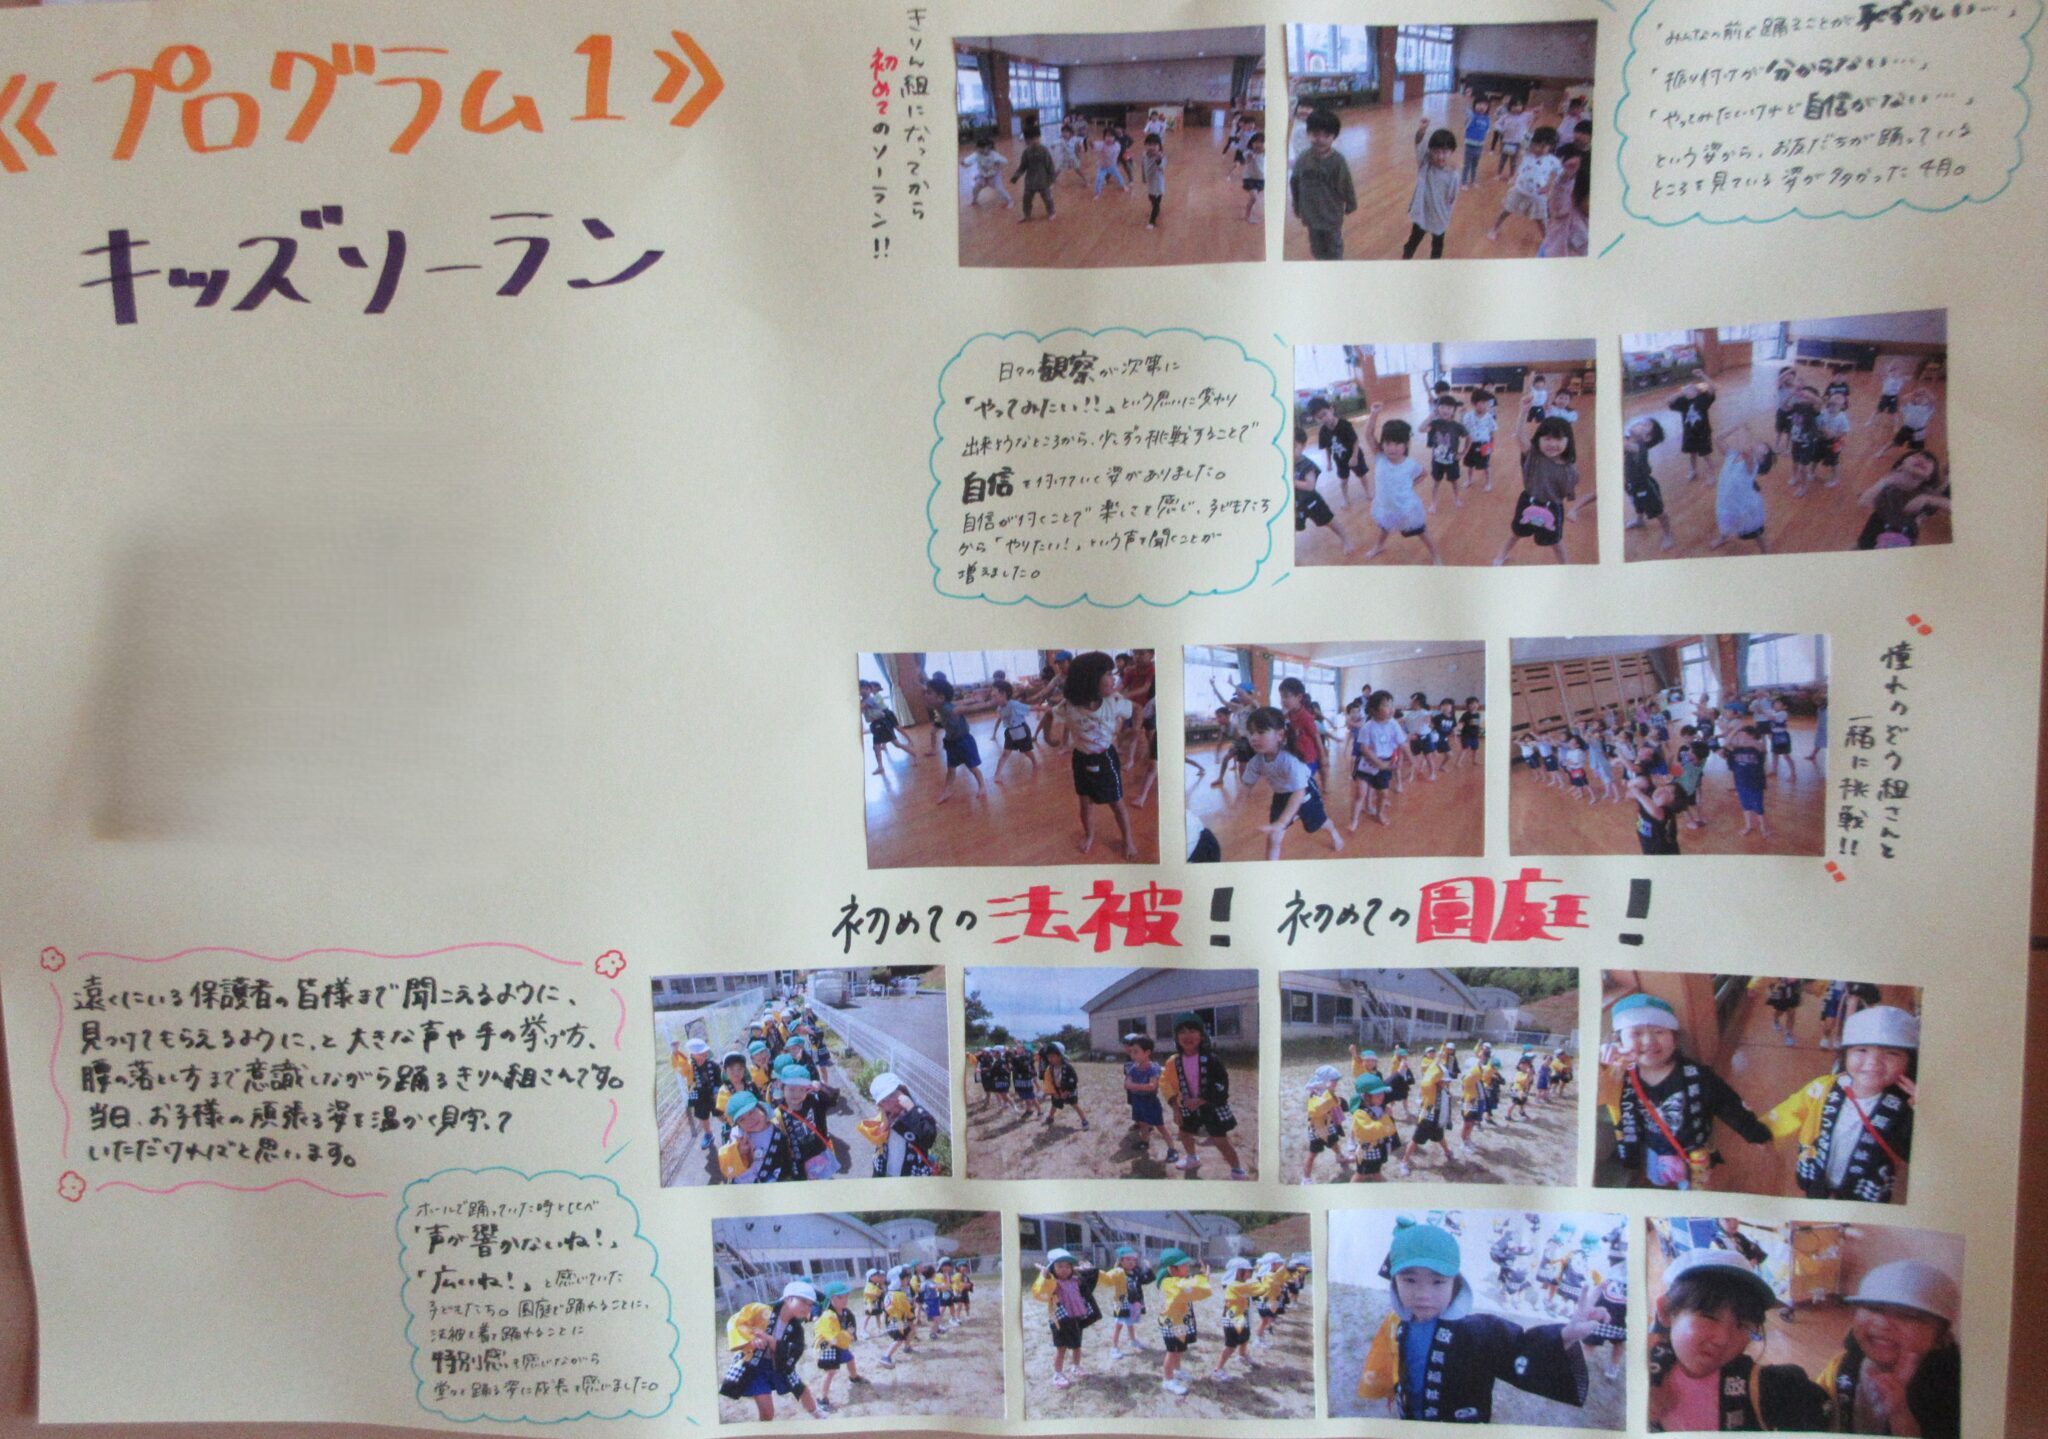 ≪プログラム1≫
キッズソーラン
きりん組になってから
初めてのソーラン!!
「みんなの前で踊ることが恥ずかしい…」
「振り付けが分からない…」
「やってみたいけど自信がない…」
という姿から、お友だちが踊っている
ところを見ている姿が多かった4月。
日々の観察が次第に
「やってみたい!!」という思いに変わり
出来そうなところから、少しずつ挑戦することで
自信を付けていく姿がありました。
自信が付くことで楽しさを感じ、子どもたち
から「やりたい!」という声を聞くことが
増えました。
憧れのぞう組さんと
一緒に挑戦!!
初めての法被! 初めての園庭!
遠くにいる保護者の皆様まで聞こえるように、
見つけてもらえるように、と大きな声や手の挙げ方、
腰の落とし方まで意識しながら踊るきりん組さんです。
当日、お子様の頑張る姿を温かく見守って
いただければと思います。
ホールで踊っていた時と比べ
「声が響かないね!」
「広いね!」と感じていた
子どもたち。園庭で踊れることに、
法被を着て踊れることに
特別感を感じながら
堂々と踊る姿に成長を感じました。